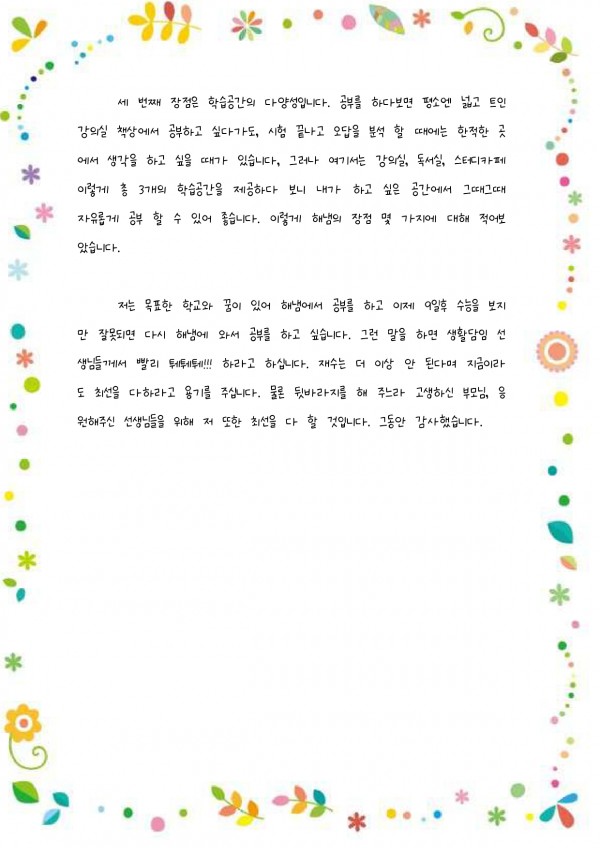 세 번째 장점은 학습공간의 다양성입니다. 공부를 하다보면 평소엔 넓고 트인
강의실 책상에서 공부하고 싶다가도, 시험 끝나고 오답을 분석 할 때에는 한적한 곳
에서 생각을 하고 싶을 때가 있습니다, 그러나 여기서는 강의실, 독서실, 스터디카페
이렇게 총 3개의 학습공간을 제공하다 보니 내가 하고 싶은 공간에서 그때그때
자유롭게 공부 할 수 있어 좋습니다. 이렇게 해냄의 장점 몇 가지에 대해 적어보
았습니다.
저는 목표한 학교와 꿈이 있어 해냄에서 공부를 하고 이제 9일후 수능을 보지
만 잘못되면 다시 해냄에 와서 공부를 하고 싶습니다. 그런 말을 하면 생활담임 선
생님들께서 빨리 퉤퉤퉤!!! 하라고 하십니다. 재수는 더 이상 안 된다며 지금이라
도 최선을 다하라고 용기를 주십니다. 물론 뒷바라지를 해 주느라 고생하신 부모님, 응
원해주신 선생님들을 위해 저 또한 최선을 다 할 것입니다. 그동안 감사했습니다.